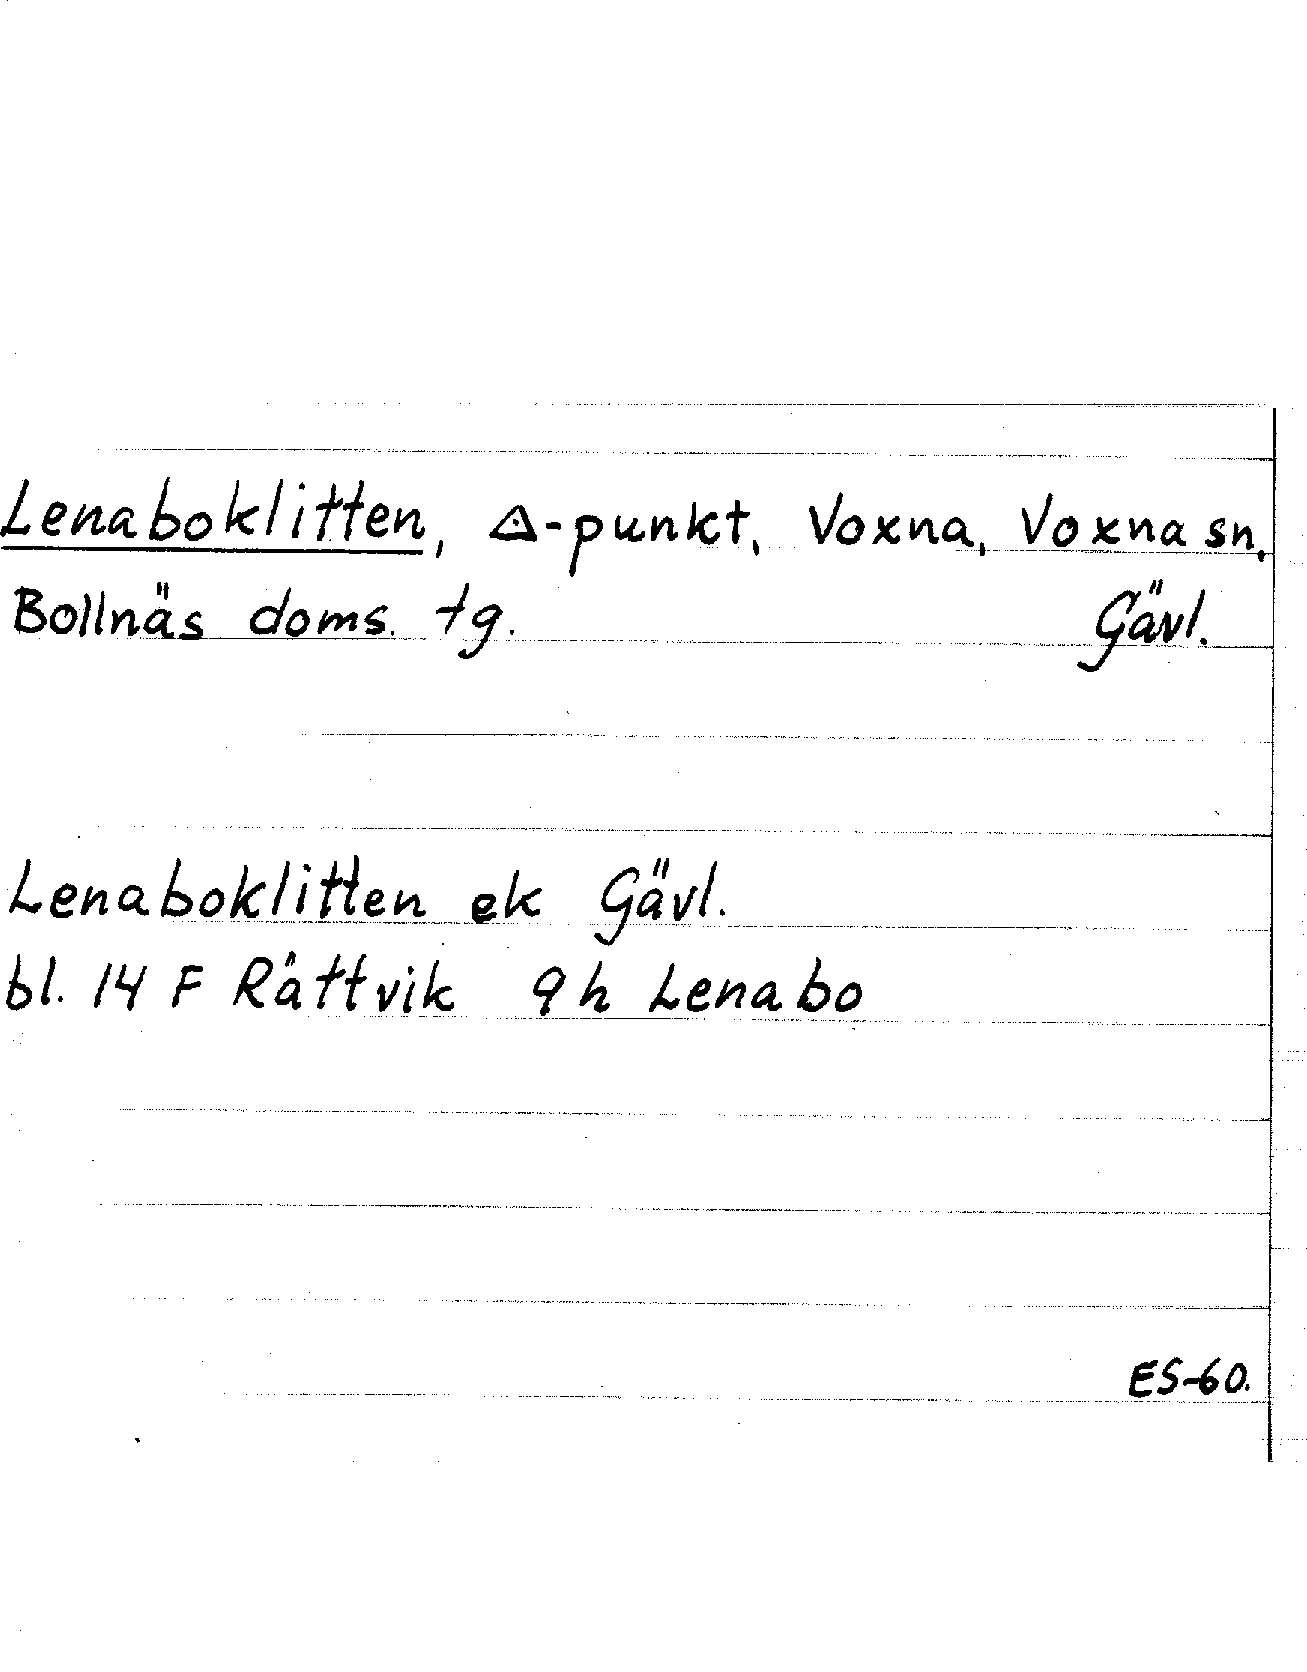 Lenaboklitten, △-punkt, Voxna, Voxna sn,
Bollnäs doms. tg. Gävl.
Lenaboklitten ek Gävl.
bl. 14 F Råttvik 9h Lenabo
ES-60.